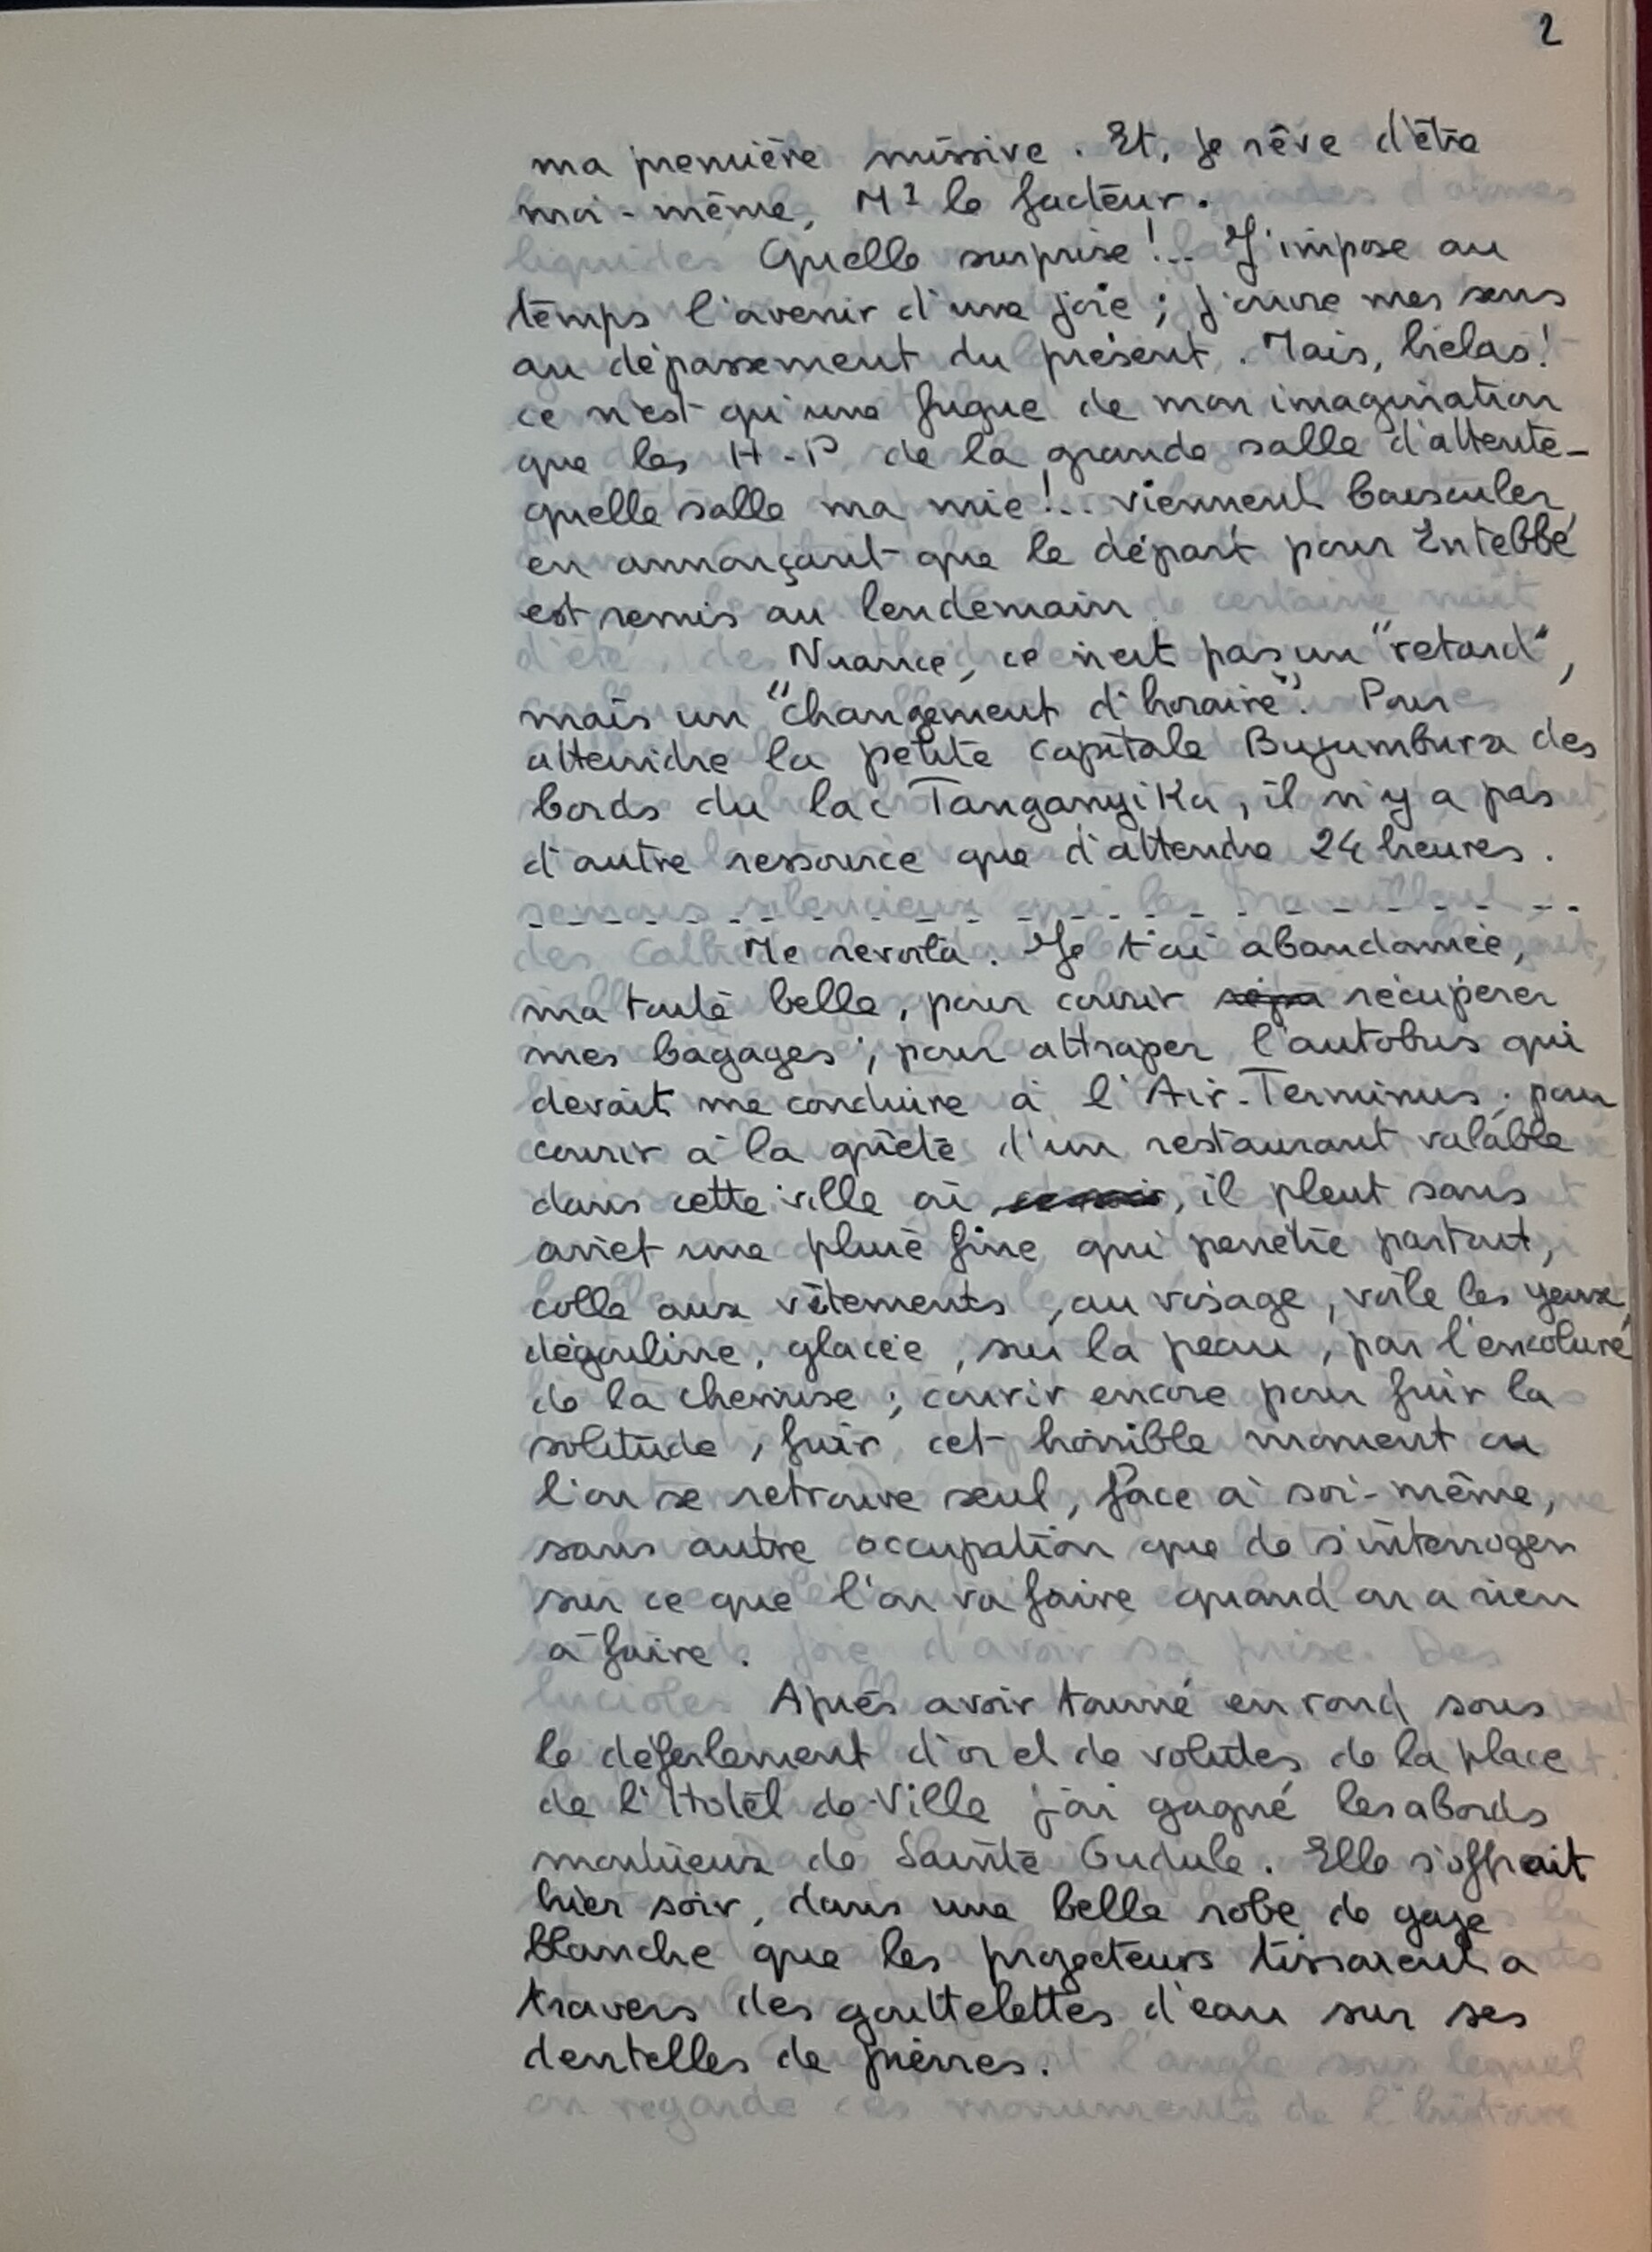 2
ma première missive. Et, je rêve d'être
moi-même, Mr le facteur.
Quelle surprise!... J'impose au
temps l'avenir d'une joie; j'ouvre mes sens
au dépassement du présent. Mais, hélas!
ce n'est qu'une fugue de mon imagination
que les H-P de la grande salle d'attente-
quelle salle ma mie!... viennent bousculer
en annonçant que le départ pour Entebbé
est remis au lendemain.
Nuance, ce n'est pas un "retard",
mais un "changement d'horaire". Pour
atteindre la petite capitale Bujumbura des
bords du lac Tanganyika, il n'y a pas
d'autre ressource que d'attendre 24 heures.
Me revoilà. Je t'ai abandonnée,
ma toute belle, pour courir récupérer
mes bagages; pour attraper l'autobus qui
devait me conduire à l'Air-Terminus; pour
courir à la quête d'un restaurant valable
dans cette ville où, il pleut sans
arrêt une pluie fine qui pénètre partout,
colle aux vêtements, au visage, voile les yeux,
dégouline, glacée, sur la peau, par l'encolure
de la chemise; courir encore pour fuir la
solitude, fuir cet horrible moment où
l'on se retrouve seul, face à soi-même,
sans autre occupation que de s'interroger
sur ce que l'on va faire quand on a rien
à faire.
Après avoir tourné en rond sous
le déferlement d'or et de volutes de la place
de l'Hotel de-Ville j'ai gagné les abords
de Sainte Gudule. Elle s'offrait
hier soir, dans une belle robe de gaze
blanche que les projecteurs tissaient à
travers des gouttelettes d'eau sur ses
dentelles de pierres.